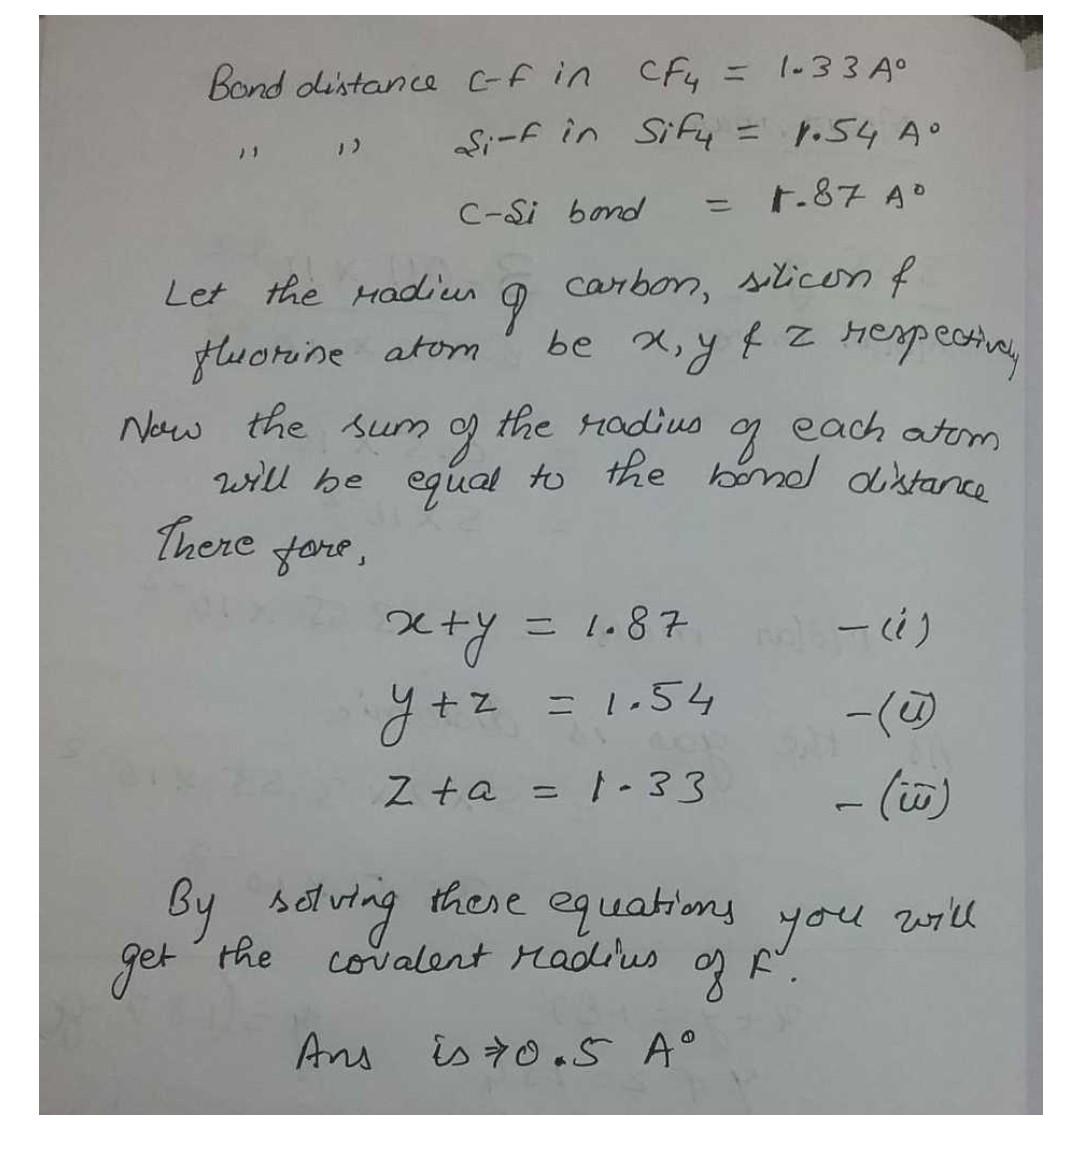 Bond distance C-F in CF4 = 1.33 A°
" " Si-F in SiF4 = 1.54 A°
C-Si bond = 1.87 A°
Let the radius of carbon, silicon &
fluorine atom be x, y & z respectively
Now the sum of the radius of each atom
will be equal to the bond distance
There fore,
x+y = 1.87 -(i)
y+z = 1.54 -(ii)
z+a = 1.33 -(iii)
By solving these equations you will
get the covalent radius of F.
Ans is → 0.5 A°